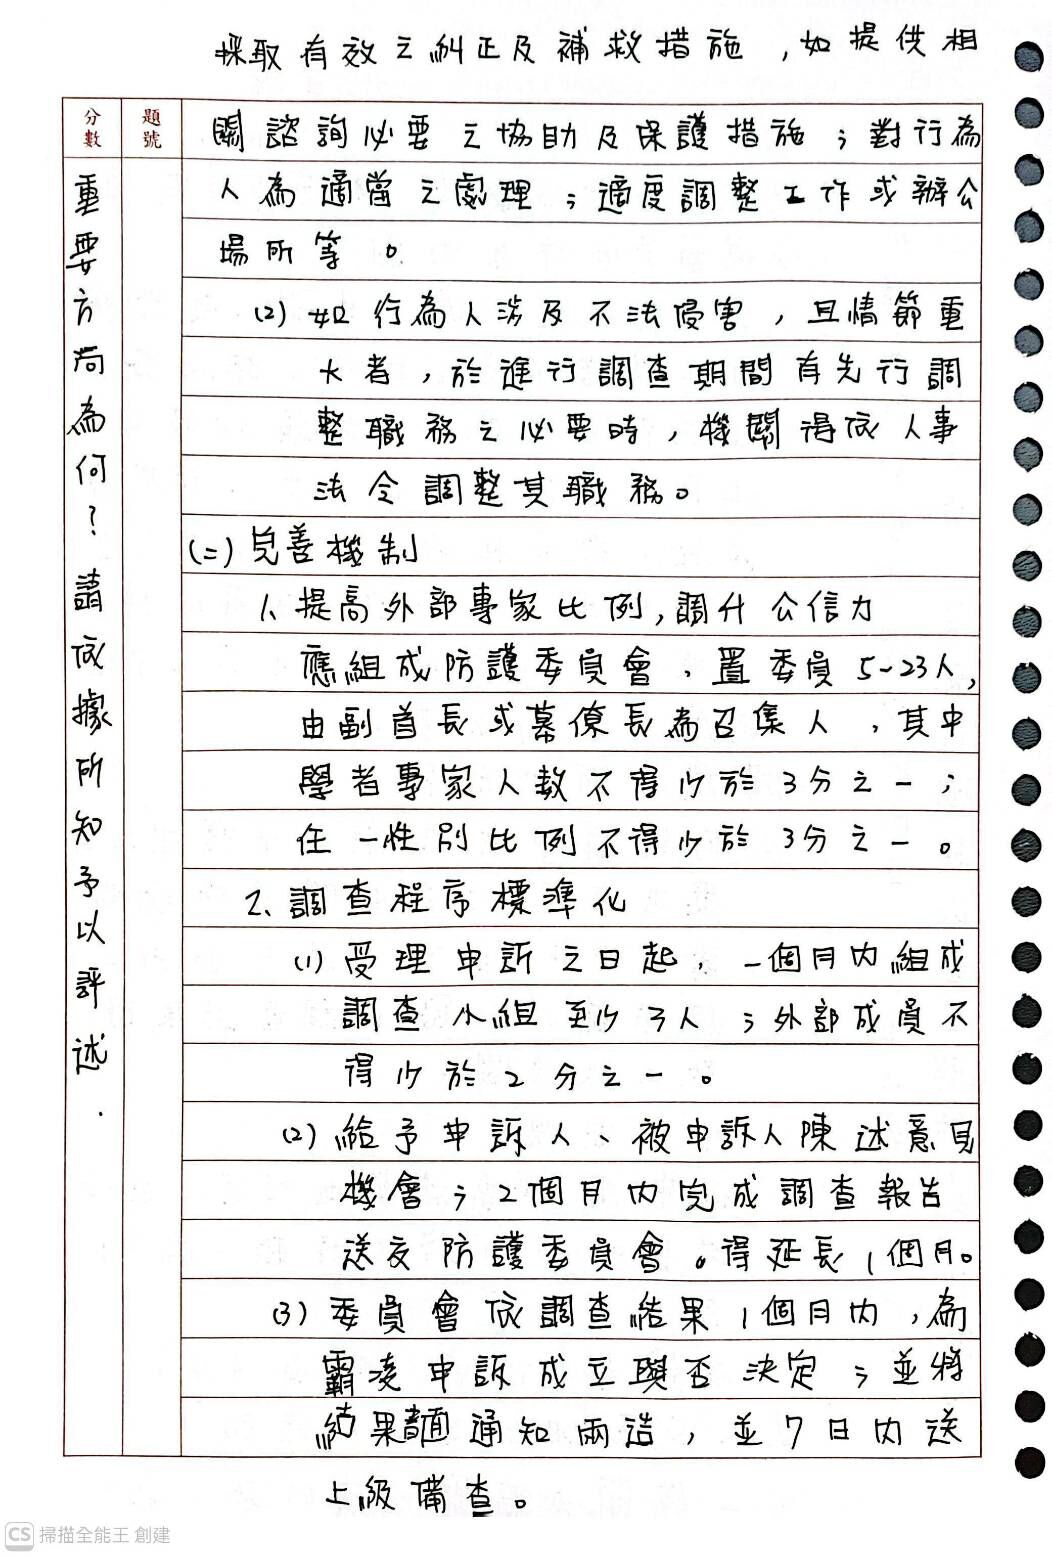 採取有效之糾正及補救措施，如提供相
分數
題號
關諮詢必要之協助及保護措施；對行為
人為適當之處理；適度調整工作或辦公
場所等。
(2)如行為人涉及不法侵害，且情節重
大者，於進行調查期間有先行調
整職務之必要時，機關得依人事
法令調整其職務。
(二)完善機制
1、提高外部專家比例,調升公信力
應組成防護委員會，置委員5-23人，
由副首長或幕僚長為召集人，其中
學者專家人數不得少於3分之一；
任一性別比例不得少於3分之一。
2、調查程序標準化
(1)受理申訴之日起，一個月內組成
調查小組至少3人；外部成員不
得少於2分之一。
(2)給予申訴人、被申訴人陳述意見
機會；2個月內完成調查報告
送交防護委員會。得延長1個月。
(3)委員會依調查結果1個月內，為
霸凌申訴成立與否決定；並將
結果書面通知兩造，並7日內送
上級備查。
重要方向為何？請依據所知予以評述.
CS 掃描全能王 創建